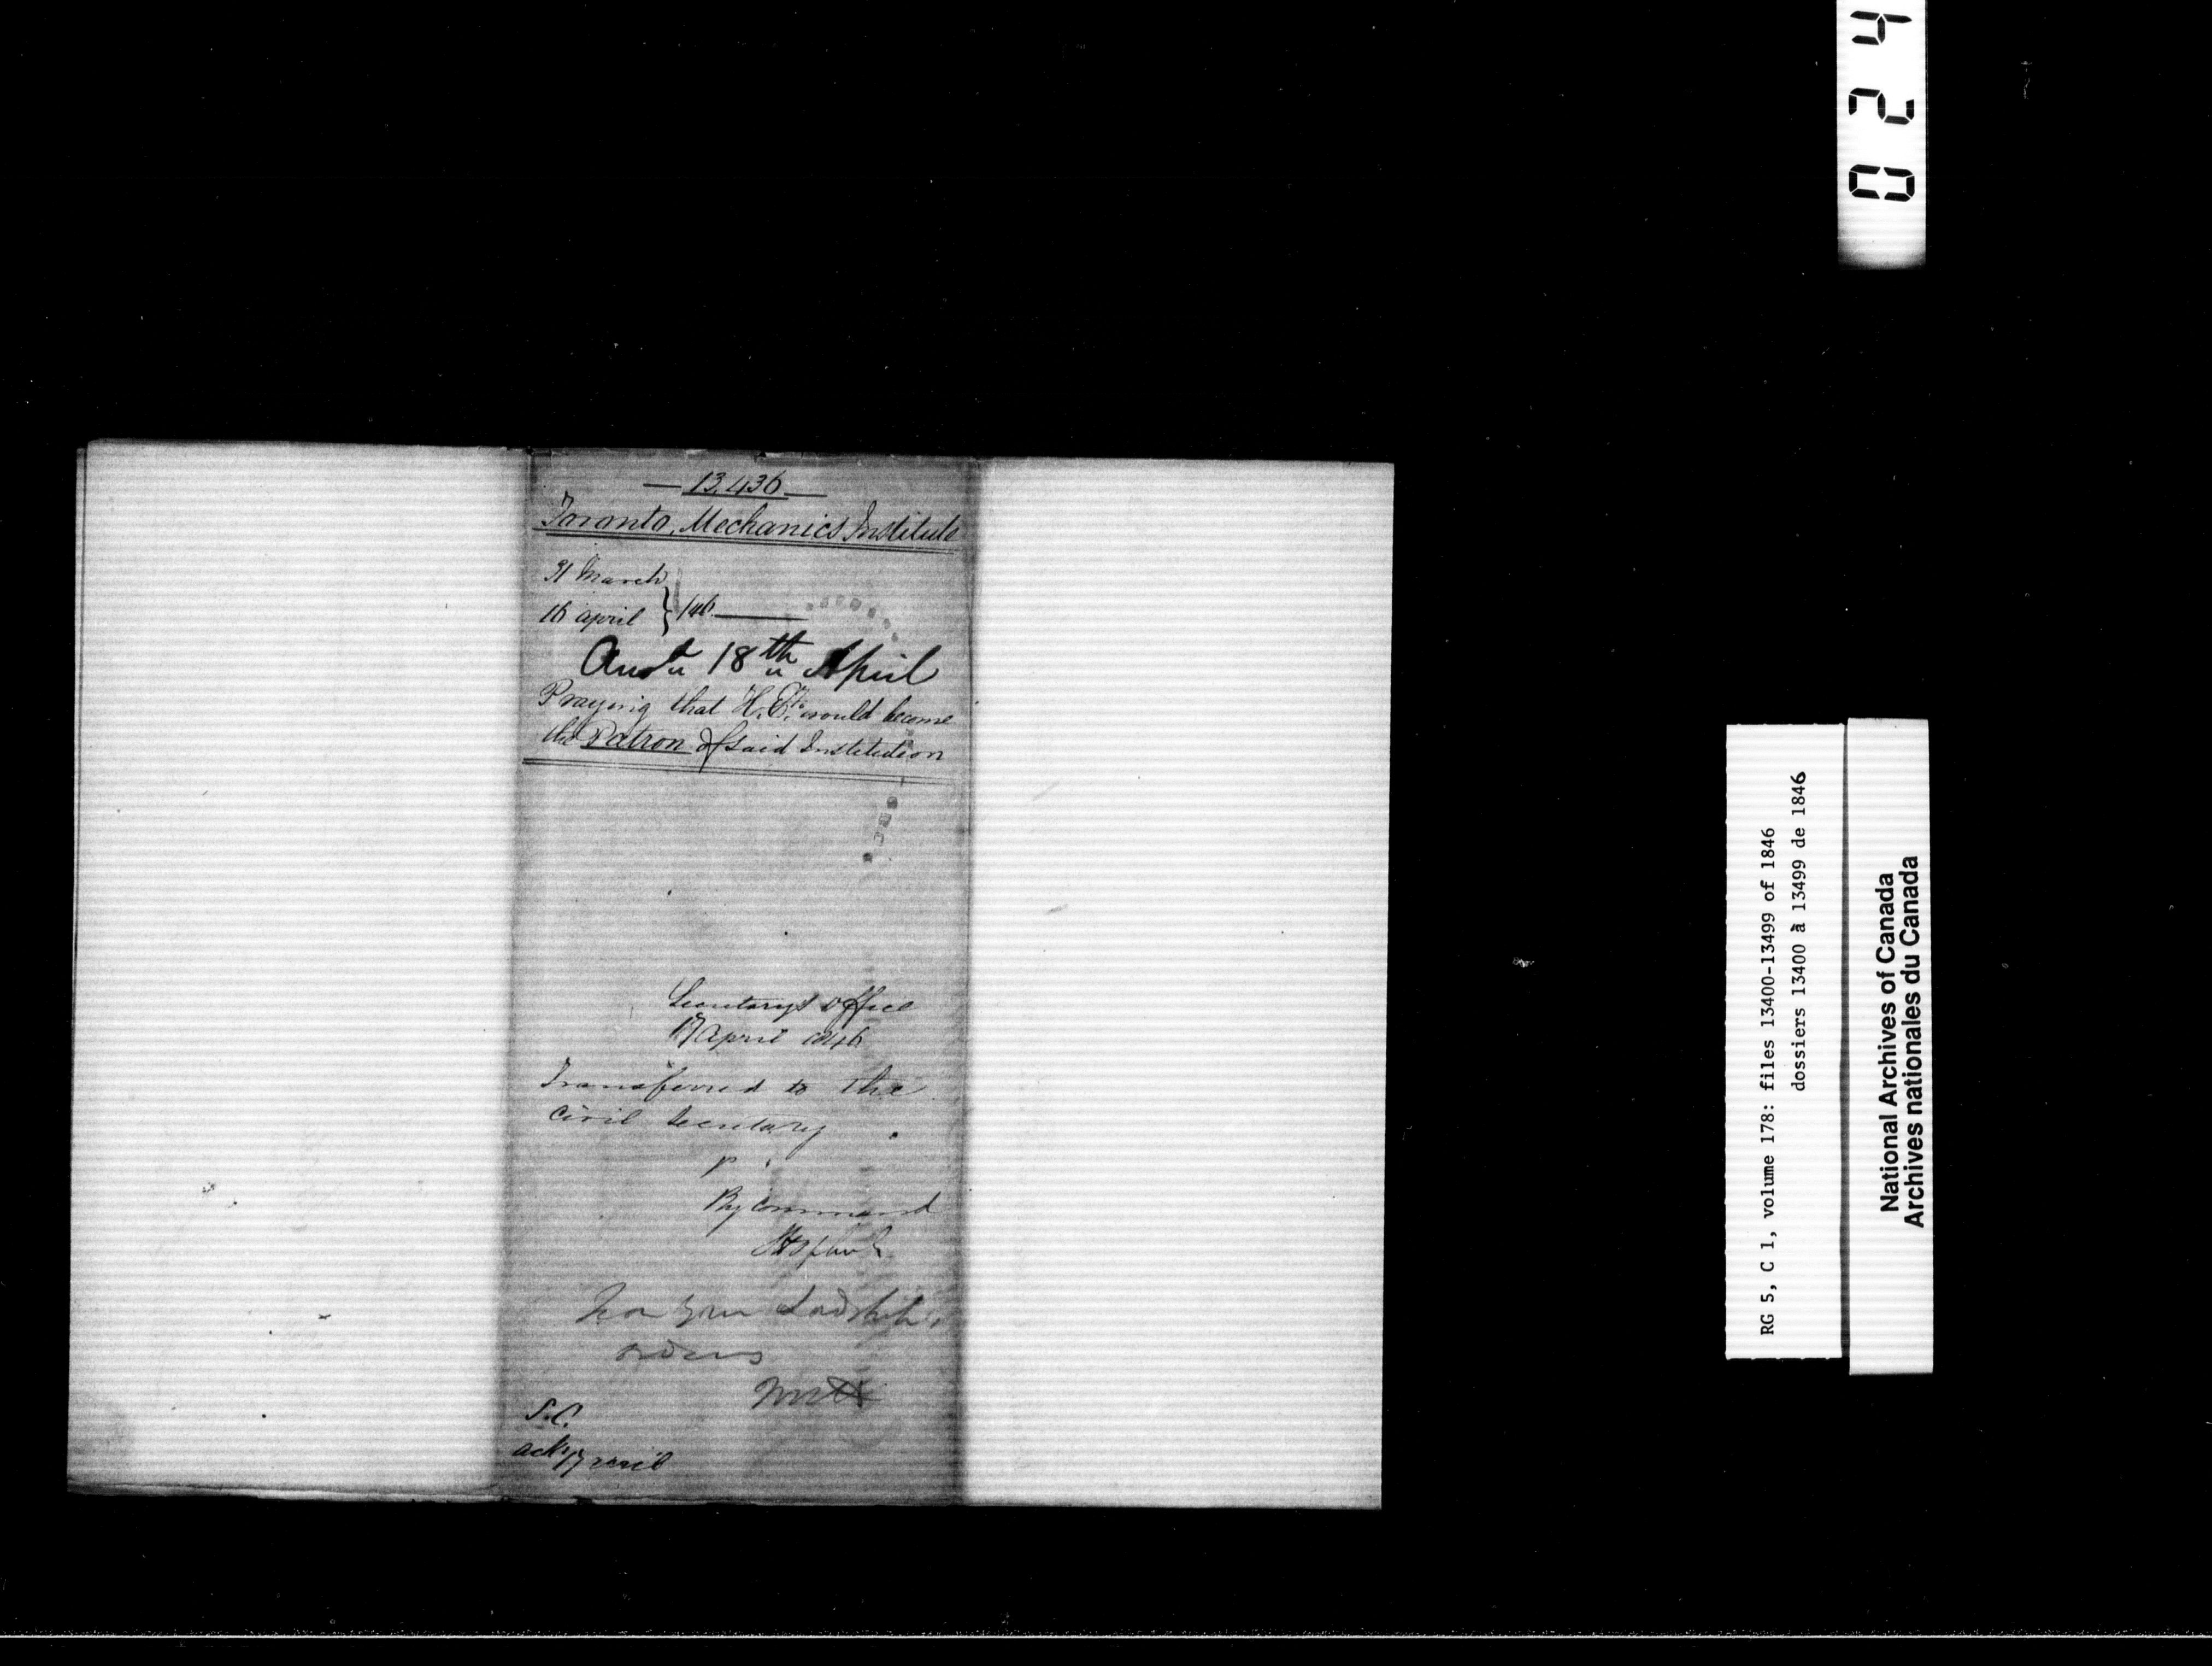 13,436
Toronto, Mechanics Institute
31 March
16 april } /46
Ansd 18th April
Praying that H. Ex. would become
the Patron of said Institution
Secretary's Office
17 April 1846
Transferred to the
Civil Secretary
By Command
For Your Lordship's
orders
S.C.
ackd 17 april
024
RG 5, C 1, volume 178: files 13400-13499 of 1846
dossiers 13400 à 13499 de 1846
National Archives of Canada
Archives nationales du Canada